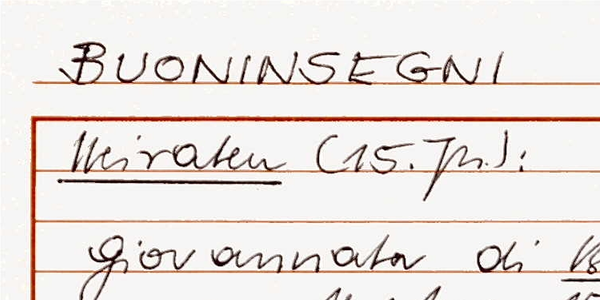 BUONINSEGNI
Heiraten (15. Jh.):
Giovannata di